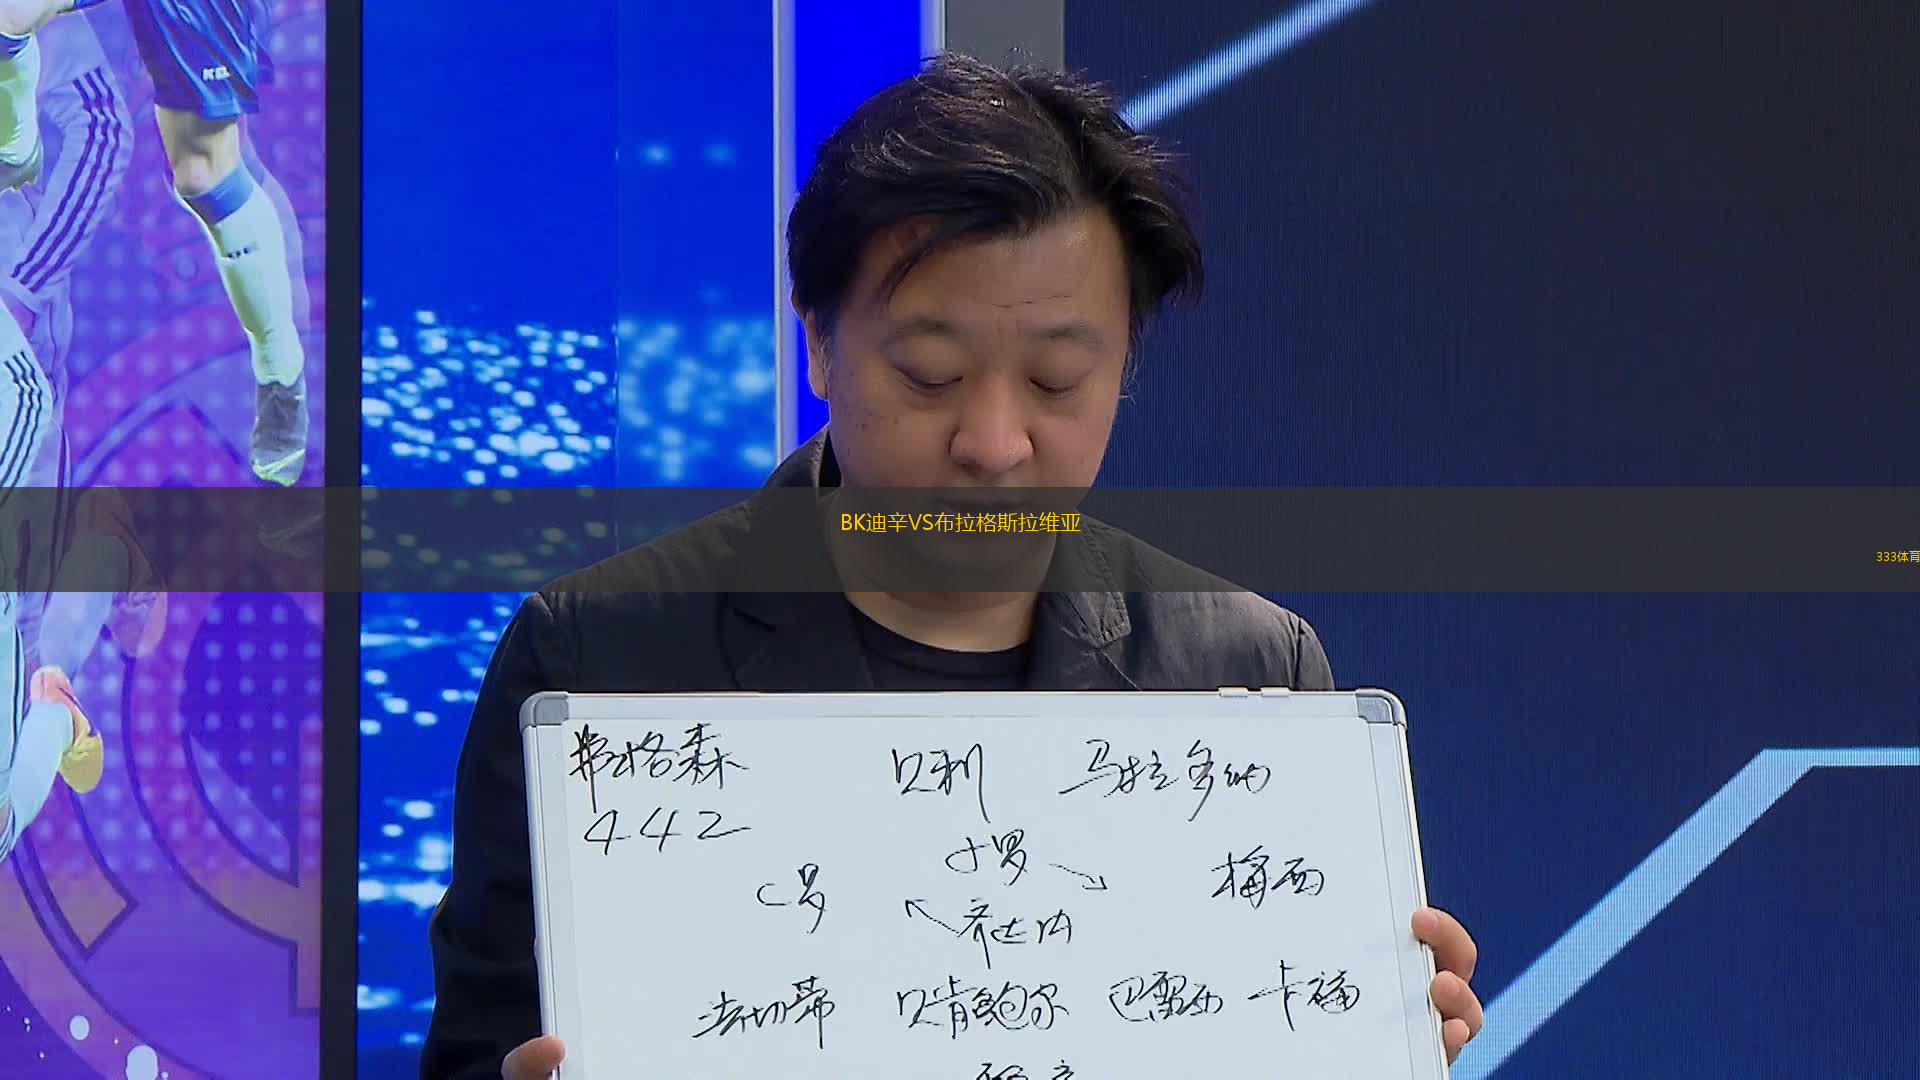 BK迪辛VS布拉格斯拉维亚
333体育
弗格森 贝利 马拉多纳
442
小罗
C罗 梅西
齐达内
法切蒂 贝肯鲍尔 巴雷西 卡福